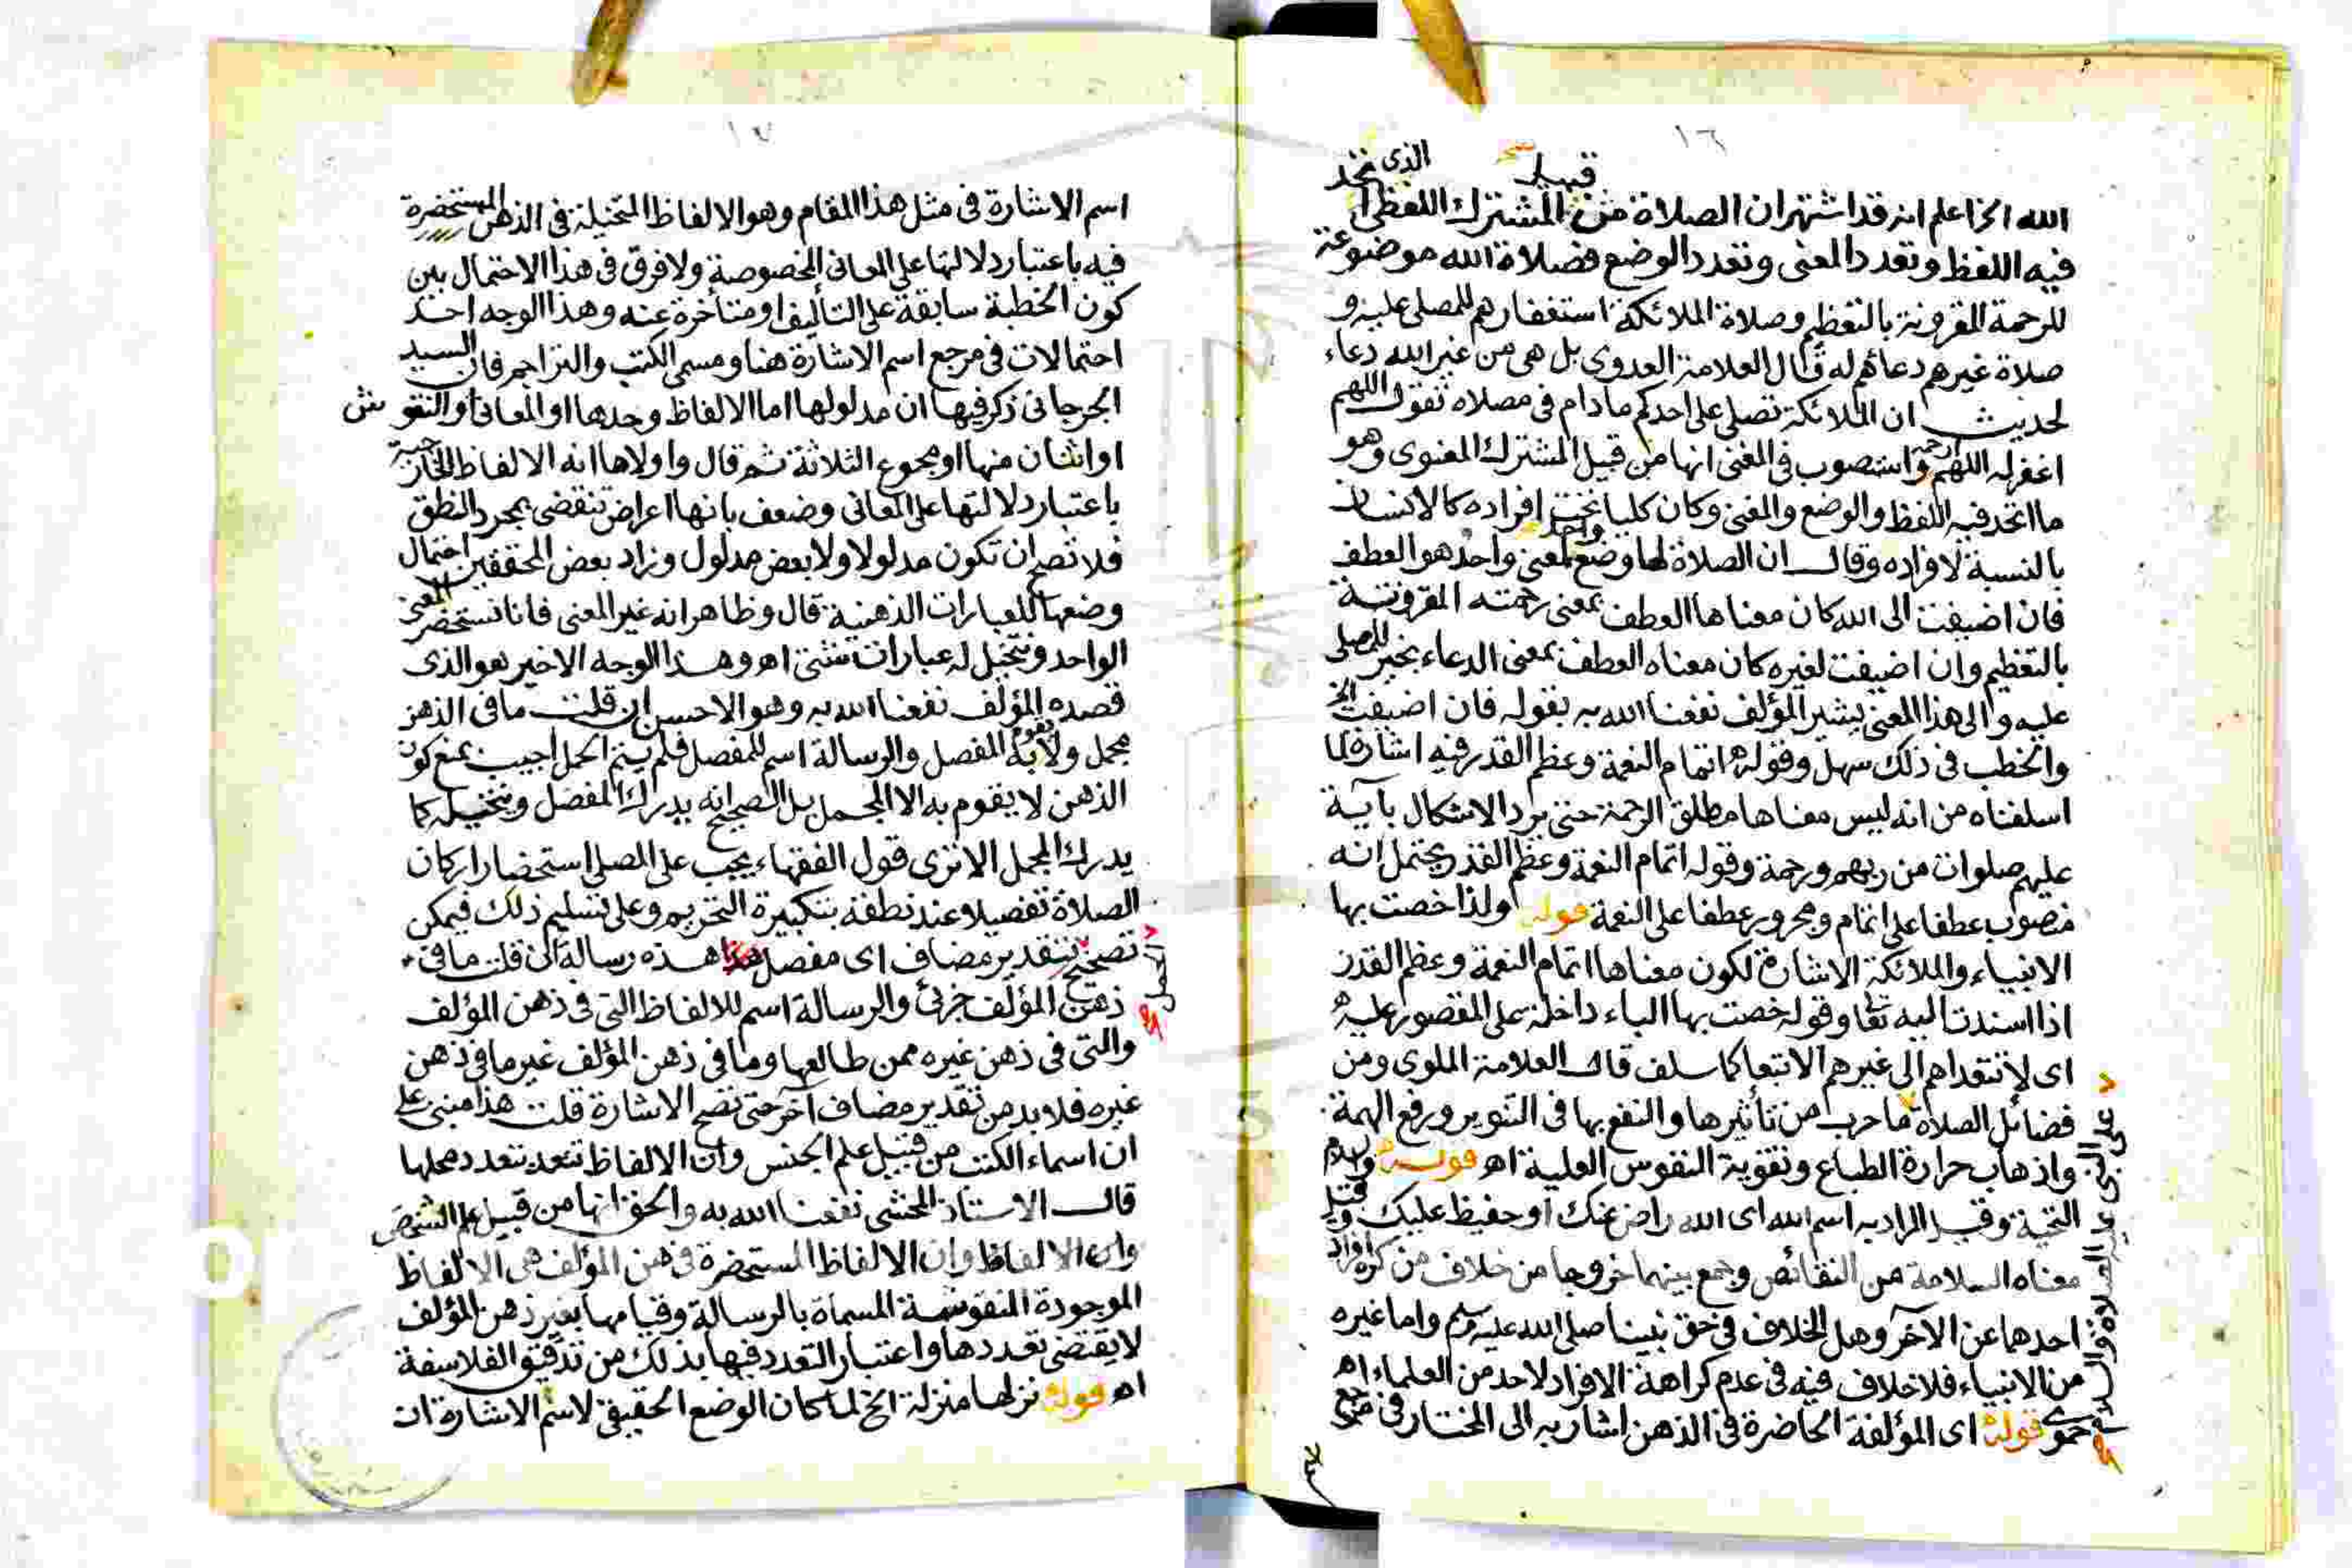 ١٦
قبيل
الله الخ اعلم انه قد اشتهر ان الصلاة من المشترك اللفظى الذى تخد
فيه اللفظ وتعدد المعنى وتعدد الوضع فصلاة الله موضوعة
للرحمة المقرونة بالتعظيم وصلاة الملائكة استغفارهم للمصلى عليه و
صلاة غيرهم دعائهم له قال العلامة العدوى بل هى من غير الله دعاء
لحديث ان الملائكة تصلى على احدكم مادام فى مصلاه تقول اللهم
اغفر له اللهم ارحمه واستصوب فى المغنى انها من قبيل المشترك المعنوى وهو
ما اتحد فيه اللفظ والوضع والمعنى وكان كليا تحته افراده كالانسان
بالنسبة لافراده وقال ان الصلاة لها وضع واحد لمعنى واحد هو العطف
فان اضيفت الى الله كان معناها العطف بمعنى رحمته المقرونة
بالتعظيم وان اضيفت لغيره كان معناه العطف بمعنى الدعاء بخير للمصلى
عليه والى هذا المعنى يشير المؤلف نفعنا الله به بقوله فان اضيفت الخ
والخطب فى ذلك سهل وقوله اتمام النعمة وعظم القدر فيه اشارة لما
اسلفناه من انه ليس معناها مطلق الرحمة حتى يرد الاشكال بآية
عليهم صلوات من ربهم ورحمة وقوله اتمام النعمة وعظم القدر يحتمل انه
منصوب عطفا على اتمام ومجرور عطفا على النعمة قوله ولذا خصت بها
الانبياء والملائكة الاشارة لكون معناها اتمام النعمة وعظم القدر
اذا اسندت اليه تعا وقوله خصت بها الباء داخلة على المقصور عليه
اى لا تتعداهم الى غيرهم الا تبعا كما سلف قال العلامة الملوى ومن
فضائل الصلاة ما جرب من تأثيرها والنفع بها فى التنوير ورفع الهمة
على النبى عليه الصلاة والسلام
واذهاب حرارة الطباع وتقوية النفوس العلية اهـ قوله والسلام
التحية وقيل المراد به اسم الله اى الله راض عنك او حفيظ عليك وقيل
معناه السلامة من النقائص وجمع بينهما خروجا من خلاف من كره افراد
احدهما عن الآخر وهل الخلاف فى حق نبينا صلى الله عليه وسلم واما غيره
من الانبياء فلا خلاف فيه فى عدم كراهة الافراد لاحد من العلماء اهـ
حموى قوله اى المؤلفة الحاضرة فى الذهن اشار به الى المختار فى مرجع
١٧
اسم الاشارة فى مثل هذا المقام وهو الالفاظ المتخيلة فى الذهن المستحضرة
فيه باعتبار دلالتها على المعانى المخصوصة ولا فرق فى هذا الاحتمال بين
كون الخطبة سابقة على التأليف او متأخرة عنه وهذا الوجه احد
احتمالات فى مرجع اسم الاشارة هنا ومسمى الكتب والتراجم فان السيد
الجرجانى ذكر فيها ان مدلولها اما الالفاظ وحدها او المعانى او النقوش
او اثنان منها او مجموع الثلاثة ثم قال واولاها انه الالفاظ الخارجية
باعتبار دلالتها على المعانى وضعف بانها اعراض تنقضى بمجرد النطق
فلا تصح ان تكون مدلولا ولا بعض مدلول وزاد بعض المحققين احتمال
وضعها للعبارات الذهنية قال وظاهر انه غير المعنى فانا نستحضر المعنى
الواحد ونتخيل له عبارات شتى اهـ وهذا الوجه الاخير هو الذى
قصده المؤلف نفعنا الله به وهو الاحسن ان قلت ما فى الذهن
مجمل ولا يقوم به المفصل والرسالة اسم للمفصل فلم يتم الحمل اجيب بمنع كون
الذهن لا يقوم به الا المجمل بل الصحيح انه يدرك المفصل ويتخيله كما
يدرك المجمل الا ترى قول الفقهاء يجب على المصلى استحضار اركان
الصلاة تفصيلا عند نطقه بتكبيرة التحريم وعلى تسليم ذلك فيمكن
تصحيح الحمل بتقدير مضاف اى مفصل هذه رسالة ان قلت ما فى
ذهن المؤلف جزئى والرسالة اسم للالفاظ التى فى ذهن المؤلف
والتى فى ذهن غيره ممن طالعها وما فى ذهن المؤلف غير ما فى ذهن
غيره فلا بد من تقدير مضاف آخر حتى تصح الاشارة قلت هذا مبنى على
ان اسماء الكتب من قبيل علم الجنس وان الالفاظ تتعدد بتعدد محلها
قال الاستاذ المحشى نفعنا الله به والحق انها من قبيل علم الشخص
وان الالفاظ وان الالفاظ المستحضرة فى ذهن المؤلف هى الالفاظ
الموجودة المنقوشة المسماة بالرسالة وقيامها بغير ذهن المؤلف
لا يقتضى تعددها واعتبار التعدد فيها بذلك من تدقيق الفلاسفة
اهـ قوله نزلها منزلة الخ لما كان الوضع الحقيقى لاسم الاشارة ان